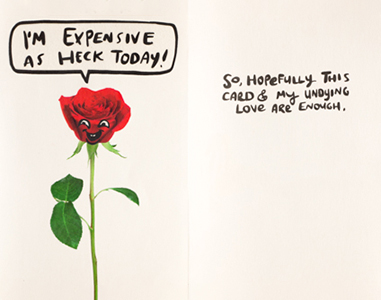 I'M EXPENSIVE
AS HECK TODAY!
SO, HOPEFULLY THIS
CARD & MY UNDYING
LOVE ARE ENOUGH.